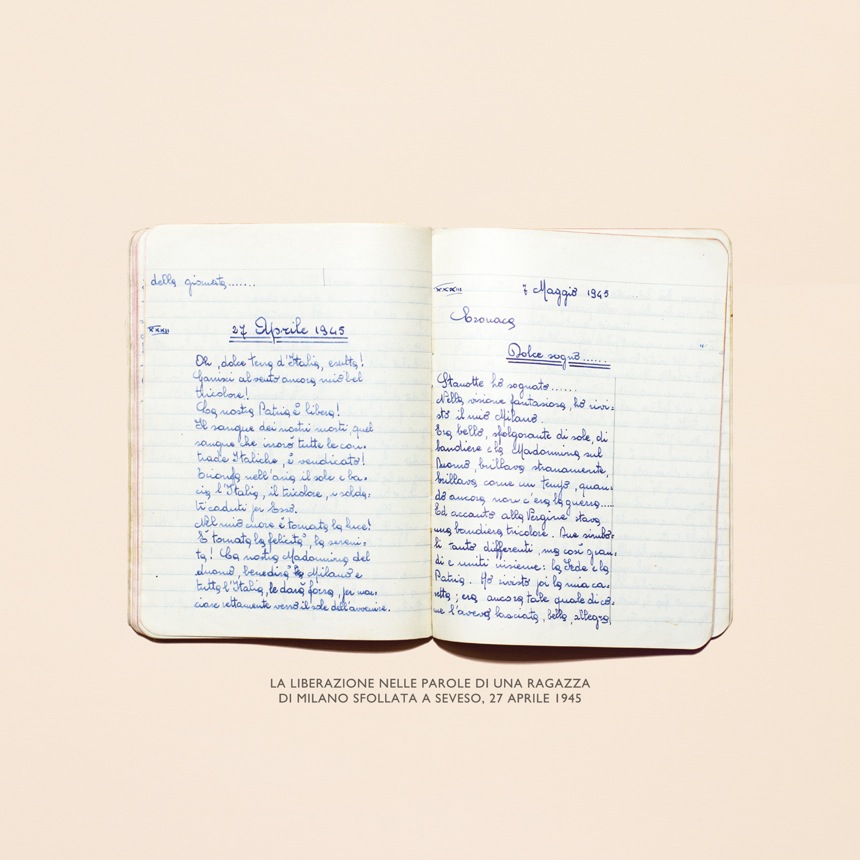 della giornata.......
XXXII
27 Aprile 1945
Oh, dolce terra d'Italia, esulta!
Garrisci al vento ancora mio bel
tricolore!
La nostra Patria è libera!
Il sangue dei nostri morti, quel
sangue che irrorò tutte le con=
trade Italiche, è vendicato!
Trionfa nell'aria il sole e ba=
cia l'Italia, il tricolore, i solda=
ti caduti per Essa.
Nel mio cuore è tornata la luce!
È tornata la felicità, la sereni=
tà! La nostra Madonnina del
duomo, benedirà Milano e
tutta l'Italia, le darà forza, per mar=
ciare rettamente verso il sole dell'avvenire.
XXXIII
7 Maggio 1945
Cronaca
Dolce sogno......
Stanotte ho sognato.......
Nella visione fantasiosa, ho rivi=
sto il mio Milano.
Era bello, sfolgorante di sole, di
bandiere e la Madonnina sul
Duomo, brillava stranamente,
brillava come un tempo, quan=
do ancora non c'era la guerra....
Ed accanto alla Vergine stava
una bandiera tricolore. Due simbo=
li tanto differenti, ma così gran=
di e uniti insieme: la Fede e la
Patria. Ho rivisto poi la mia ca=
setta; era ancora tale quale di co=
me l'avevo lasciata, bella, allegra,
LA LIBERAZIONE NELLE PAROLE DI UNA RAGAZZA
DI MILANO SFOLLATA A SEVESO, 27 APRILE 1945